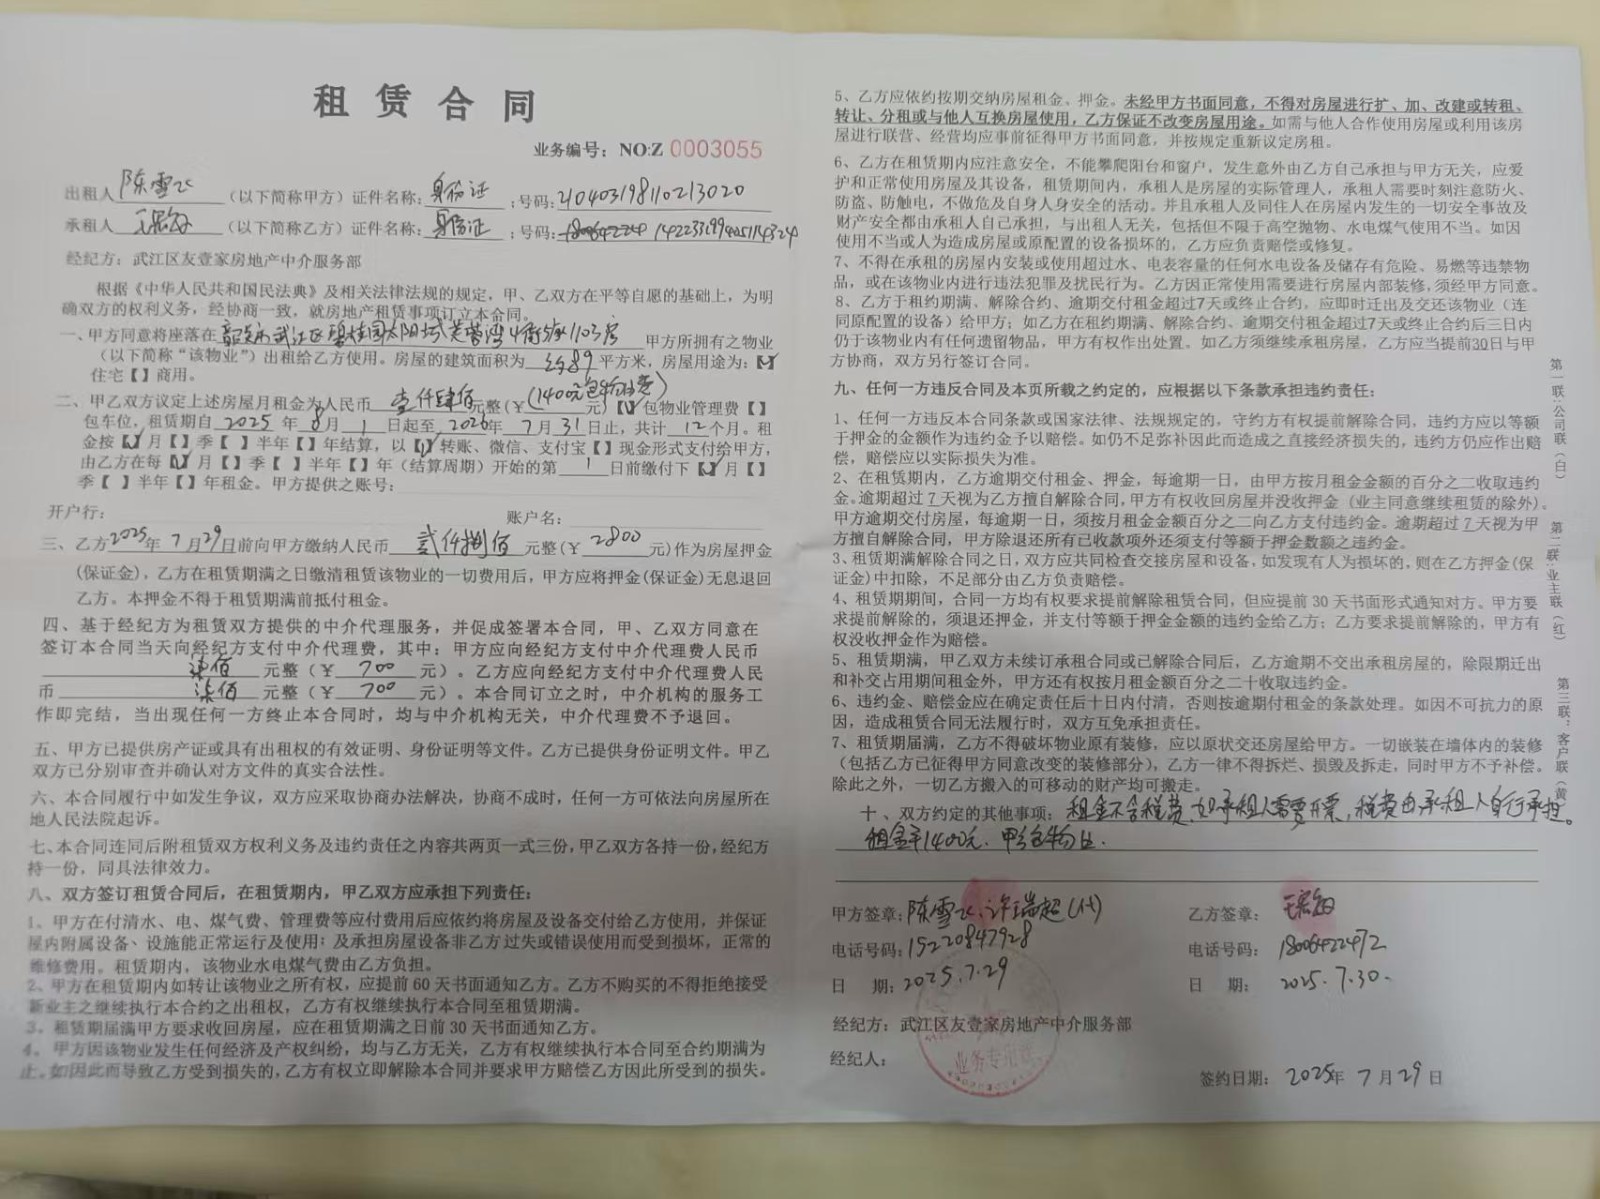 租赁合同
业务编号：NO:Z 0003055
出租人 陈雪飞 （以下简称甲方）证件名称：身份证 ；号码：210403198110213020
承租人 （以下简称乙方）证件名称：身份证 ；号码：
经纪方：武江区友壹家房地产中介服务部
根据《中华人民共和国民法典》及相关法律法规的规定，甲、乙双方在平等自愿的基础上，为明
确双方的权利义务，经协商一致，就房地产租赁事项订立本合同。
一、甲方同意将座落在 韶关市武江区碧桂园太阳城芙蓉湾4街 1103房 甲方所拥有之物业
（以下简称“该物业”）出租给乙方使用。房屋的建筑面积为 约89 平方米，房屋用途为：【✓】
住宅【】商用。
二、甲乙双方议定上述房屋月租金为人民币 壹仟肆佰 元整（￥（1400元包物业费） 元）【✓】包物业管理费【】
包车位，租赁期自 2025 年 8 月 1 日起至 2026 年 7 月 31 日止，共计 12 个月。租
金按【✓】月【】季【】半年【】年结算，以【✓】转账、微信、支付宝【】现金形式支付给甲方，
由乙方在每【✓】月【】季【】半年【】年（结算周期）开始的第 1 日前缴付下【✓】月【】
季【】半年【】年租金。甲方提供之账号：
开户行： 账户名：
三、乙方 2025 年 7 月 29 日前向甲方缴纳人民币 贰仟捌佰 元整（￥ 2800 元）作为房屋押金
（保证金），乙方在租赁期满之日缴清租赁该物业的一切费用后，甲方应将押金（保证金）无息退回
乙方。本押金不得于租赁期满前抵付租金。
四、基于经纪方为租赁双方提供的中介代理服务，并促成签署本合同，甲、乙双方同意在
签订本合同当天向经纪方支付中介代理费，其中：甲方应向经纪方支付中介代理费人民币
柒佰 元整（￥ 700 元）。乙方应向经纪方支付中介代理费人民
币 柒佰 元整（￥ 700 元）。本合同订立之时，中介机构的服务工
作即完结，当出现任何一方终止本合同时，均与中介机构无关，中介代理费不予退回。
五、甲方已提供房产证或具有出租权的有效证明、身份证明等文件。乙方已提供身份证明文件。甲乙
双方已分别审查并确认对方文件的真实合法性。
六、本合同履行中如发生争议，双方应采取协商办法解决，协商不成时，任何一方可依法向房屋所在
地人民法院起诉。
七、本合同连同后附租赁双方权利义务及违约责任之内容共两页一式三份，甲乙双方各持一份，经纪方
持一份，同具法律效力。
八、双方签订租赁合同后，在租赁期内，甲乙双方应承担下列责任：
1、甲方在付清水、电、煤气费、管理费等应付费用后应依约将房屋及设备交付给乙方使用，并保证
屋内附属设备、设施能正常运行及使用；及承担房屋设备非乙方过失或错误使用而受到损坏，正常的
维修费用。租赁期内，该物业水电煤气费由乙方负担。
2、甲方在租赁期内如转让该物业之所有权，应提前60天书面通知乙方。乙方不购买的不得拒绝接受
新业主之继续执行本合约之出租权，乙方有权继续执行本合同至租赁期满。
3、租赁期届满甲方要求收回房屋，应在租赁期满之日前30天书面通知乙方。
4、甲方因该物业发生任何经济及产权纠纷，均与乙方无关，乙方有权继续执行本合同至合约期满为
止。如因此而导致乙方受到损失的，乙方有权立即解除本合同并要求甲方赔偿乙方因此所受到的损失。
5、乙方应依约按期交纳房屋租金、押金。未经甲方书面同意，不得对房屋进行扩、加、改建或转租、
转让、分租或与他人互换房屋使用，乙方保证不改变房屋用途。如需与他人合作使用房屋或利用该房
屋进行联营、经营均应事前征得甲方书面同意，并按规定重新议定房租。
6、乙方在租赁期内应注意安全，不能攀爬阳台和窗户，发生意外由乙方自己承担与甲方无关，应爱
护和正常使用房屋及其设备，租赁期间内，承租人是房屋的实际管理人，承租人需要时刻注意防火、
防盗、防触电，不做危及自身人身安全的活动。并且承租人及同住人在房屋内发生的一切安全事故及
财产安全都由承租人自己承担，与出租人无关，包括但不限于高空抛物、水电煤气使用不当。如因
使用不当或人为造成房屋或原配置的设备损坏的，乙方应负责赔偿或修复。
7、不得在承租的房屋内安装或使用超过水、电表容量的任何水电设备及储存有危险、易燃等违禁物
品，或在该物业内进行违法犯罪及扰民行为。乙方因正常使用需要进行房屋内部装修，须经甲方同意。
8、乙方于租约期满、解除合约、逾期交付租金超过7天或终止合约，应即时迁出及交还该物业（连
同原配置的设备）给甲方；如乙方在租约期满、解除合约、逾期交付租金超过7天或终止合约后三日内
仍于该物业内有任何遗留物品，甲方有权作出处置。如乙方须继续承租房屋，乙方应当提前30日与甲
方协商，双方另行签订合同。
九、任何一方违反合同及本页所载之约定的，应根据以下条款承担违约责任：
1、任何一方违反本合同条款或国家法律、法规规定的，守约方有权提前解除合同，违约方应以等额
于押金的金额作为违约金予以赔偿。如仍不足弥补因此而造成之直接经济损失的，违约方仍应作出赔
偿，赔偿应以实际损失为准。
2、在租赁期内，乙方逾期交付租金、押金，每逾期一日，由甲方按月租金金额的百分之二收取违约
金。逾期超过 7 天视为乙方擅自解除合同，甲方有权收回房屋并没收押金（业主同意继续租赁的除外）。
甲方逾期交付房屋，每逾期一日，须按月租金金额百分之二向乙方支付违约金。逾期超过 7 天视为甲
方擅自解除合同，甲方除退还所有已收款项外还须支付等额于押金数额之违约金。
3、租赁期满解除合同之日，双方应共同检查交接房屋和设备，如发现有人为损坏的，则在乙方押金(保
证金)中扣除，不足部分由乙方负责赔偿。
4、租赁期期间，合同一方均有权要求提前解除租赁合同，但应提前30天书面形式通知对方。甲方要
求提前解除的，须退还押金，并支付等额于押金金额的违约金给乙方；乙方要求提前解除的，甲方有
权没收押金作为赔偿。
5、租赁期满，甲乙双方未续订承租合同或已解除合同后，乙方逾期不交出承租房屋的，除限期迁出
和补交占用期间租金外，甲方还有权按月租金额百分之二十收取违约金。
6、违约金、赔偿金应在确定责任后十日内付清，否则按逾期付租金的条款处理。如因不可抗力的原
因，造成租赁合同无法履行时，双方互免承担责任。
7、租赁期届满，乙方不得破坏物业原有装修，应以原状交还房屋给甲方。一切嵌装在墙体内的装修
（包括乙方已征得甲方同意改变的装修部分），乙方一律不得拆烂、损毁及拆走，同时甲方不予补偿。
除此之外，一切乙方搬入的可移动的财产均可搬走。
十、双方约定的其他事项：租金不含税费，如承租人需要开票，税费由承租人自行承担。
租金1400元．
甲方签章：陈雪飞．许瑞超（代） 乙方签章：
电话号码：15220847928 电话号码：18006422472
日 期：2025.7.29 日 期：2025.7.30.
经纪方：武江区友壹家房地产中介服务部
经纪人：
业务专用章
签约日期：2025年 7 月 29 日
第一联：公司联（白）
第二联：业主联（红）
第三联：客户联（黄）